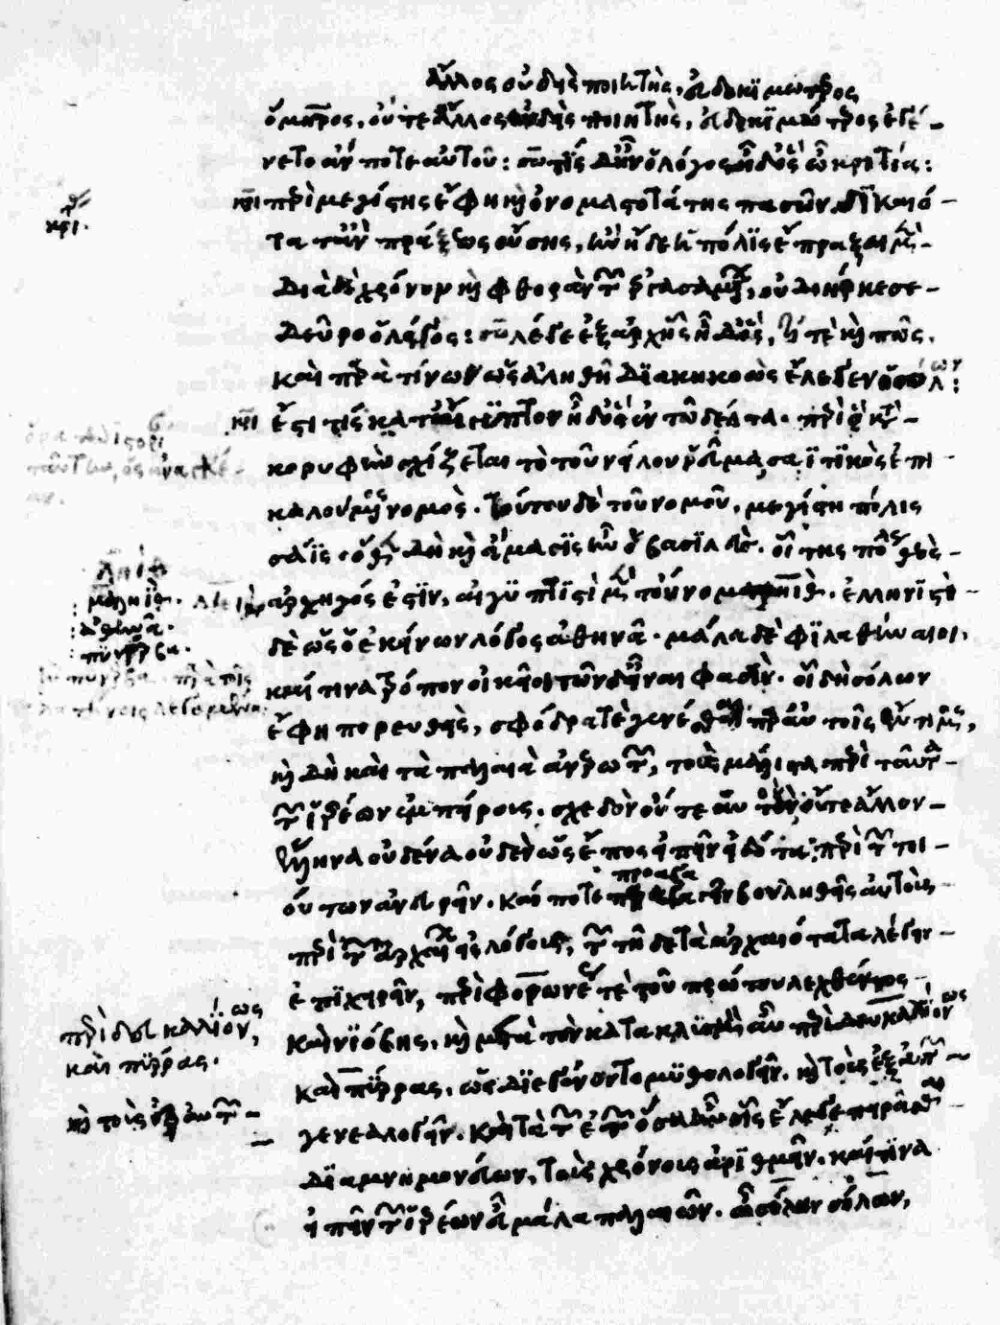 ἄλλος οὐδεὶς ποιητὴς, εὐδοκιμώτερος
ὅμηρος, οὔτε ἄλλος οὐδεὶς ποιητὴς, εὐδοκιμώτερος ἐγέ-
νετο ἄν ποτε αὐτοῦ: τίς δ' ἦν ὁ λόγος ἦ δ' ὃς ὦ κριτία:
κρι περὶ μεγίστης ἔφη καὶ ὀνομαστοτάτης πασῶν δικαιό-
τατ' ἂν πράξεως οὔσης, ἣν ἥδε ἡ πόλις ἔπραξε μὲν-
διὰ δὲ χρόνον καὶ φθορὰν τῶν ἐργασαμένων, οὐ διήρκεσε-
δεῦρο ὁ λόγος: λέγε ἐξ ἀρχῆς ἦ δ' ὃς, τί τὲ καὶ πῶς.
καὶ παρὰ τίνων ὡς ἀληθῆ διακηκοὼς ἔλεγεν ὁ σόλων:
κρι ἔστι τίς κατ' αἴγυπτον ἦ δ' ὃς ἐν τῶ δέλτα. περὶ ὃ κατὰ-
κορυφὴν σχίζεται τὸ τοῦ νείλου ῥεῦμα, σαϊτικὸς ἐπι
καλούμενος νομὸς. τούτου δὲ τοῦ νομοῦ, μεγίστη πόλις
σάϊς. ὅθεν δὴ καὶ ἄμασις ἦν ὁ βασιλεὺς. οἳ τῆς πόλεως θεὸς-
ἀρχηγός ἐστιν, αἰγυπτιστὶ μὲν τοὔνομα νηΐθ. ἑλληνιστὶ-
δὲ ὡς ὁ ἐκείνων λόγος ἀθηνᾶ. μάλα δὲ φιλαθήναιοι,
καί τινα τρόπον οἰκεῖοι τῶνδ' εἶναι φασὶν. οἷ δὴ σόλων
ἔφη πορευθεὶς, σφόδρα τὲ γενέσθαι παρ' αὐτοῖς ἔντιμος,
καὶ δὴ καὶ τὰ παλαιὰ ἀνερωτῶν, τοὺς μάλιστα περὶ ταῦτα-
τῶν ἱερέων ἐμπείρους. σχεδὸν οὔτε αὑτὸν οὔτε ἄλλον-
ἕλληνα οὐδένα οὐδὲν ὡς ἔπος εἰπεῖν εἰδότα περὶ τῶν τοι-
ούτων ἀνευρεῖν. καί ποτε προαγαγεῖν βουληθεὶς αὐτοὺς-
περὶ τῶν ἀρχαίων εἰς λόγους, τῶν τῆδε τὰ ἀρχαιότατα λέγειν-
ἐπιχειρεῖν, περὶ φορωνέως τὲ τοῦ πρώτου λεχθέντος-
καὶ νιόβης, καὶ μετὰ τὸν κατακλυσμὸν αὖ περὶ δευκαλίωνος
καὶ πύρρας. ὡς διεγένοντο μυθολογεῖν. καὶ τοὺς ἐξ αὐτῶν-
γενεαλογεῖν. καὶ τὰ τῶν ἐτῶν ὅσα ἦν οἷς ἔλεγε πειρᾶσθαι-
διαμνημονεύων, τοὺς χρόνους ἀριθμεῖν. καί τινα
εἰπεῖν τῶν ἱερέων εὖ μάλα παλαιῶν. ὦ σόλων σόλων,
κρι.
ἀθηνᾶ.
περὶ δευκαλίωνος,
καὶ πύρρας.
καὶ τοὺς ἐξ αὐτῶν-